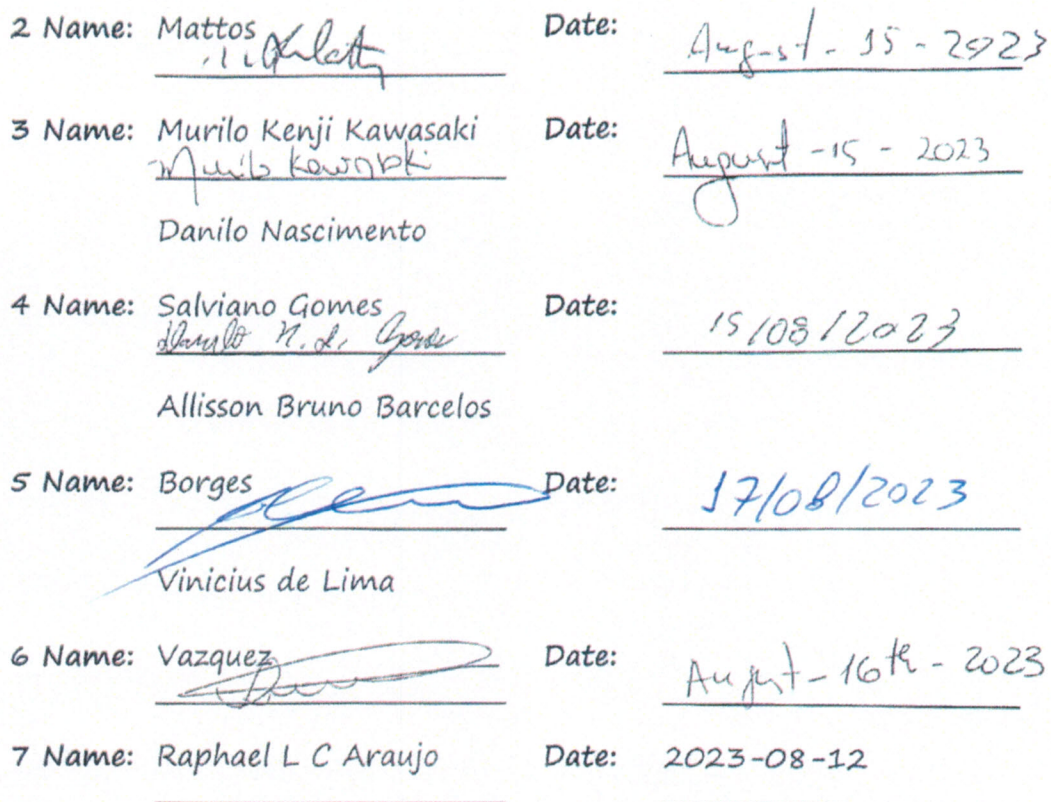 2 Name: Mattos Date: August - 15 - 2023
3 Name: Murilo Kenji Kawasaki Date: August - 15 - 2023
Murilo Kawasaki
Danilo Nascimento
4 Name: Salviano Gomes Date: 15/08/2023
Danilo N. S. Gomes
Allisson Bruno Barcelos
5 Name: Borges Date: 17/08/2023
Vinicius de Lima
6 Name: Vazquez Date: August - 16th - 2023
7 Name: Raphael L C Araujo Date: 2023-08-12